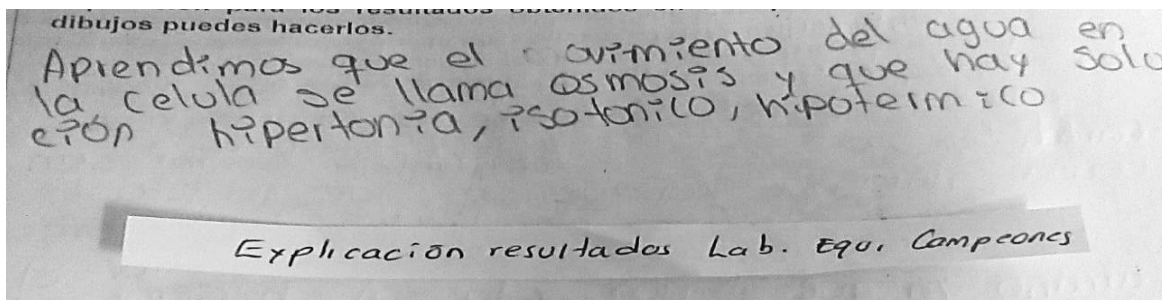 dibujos puedes hacerlos.
Aprendimos que el ovimiento del agua en
la celula se llama osmosis y que hay solo
ción hipertonia, isotonico, hipotermico
Explicación resultados Lab. Equ. Campeones